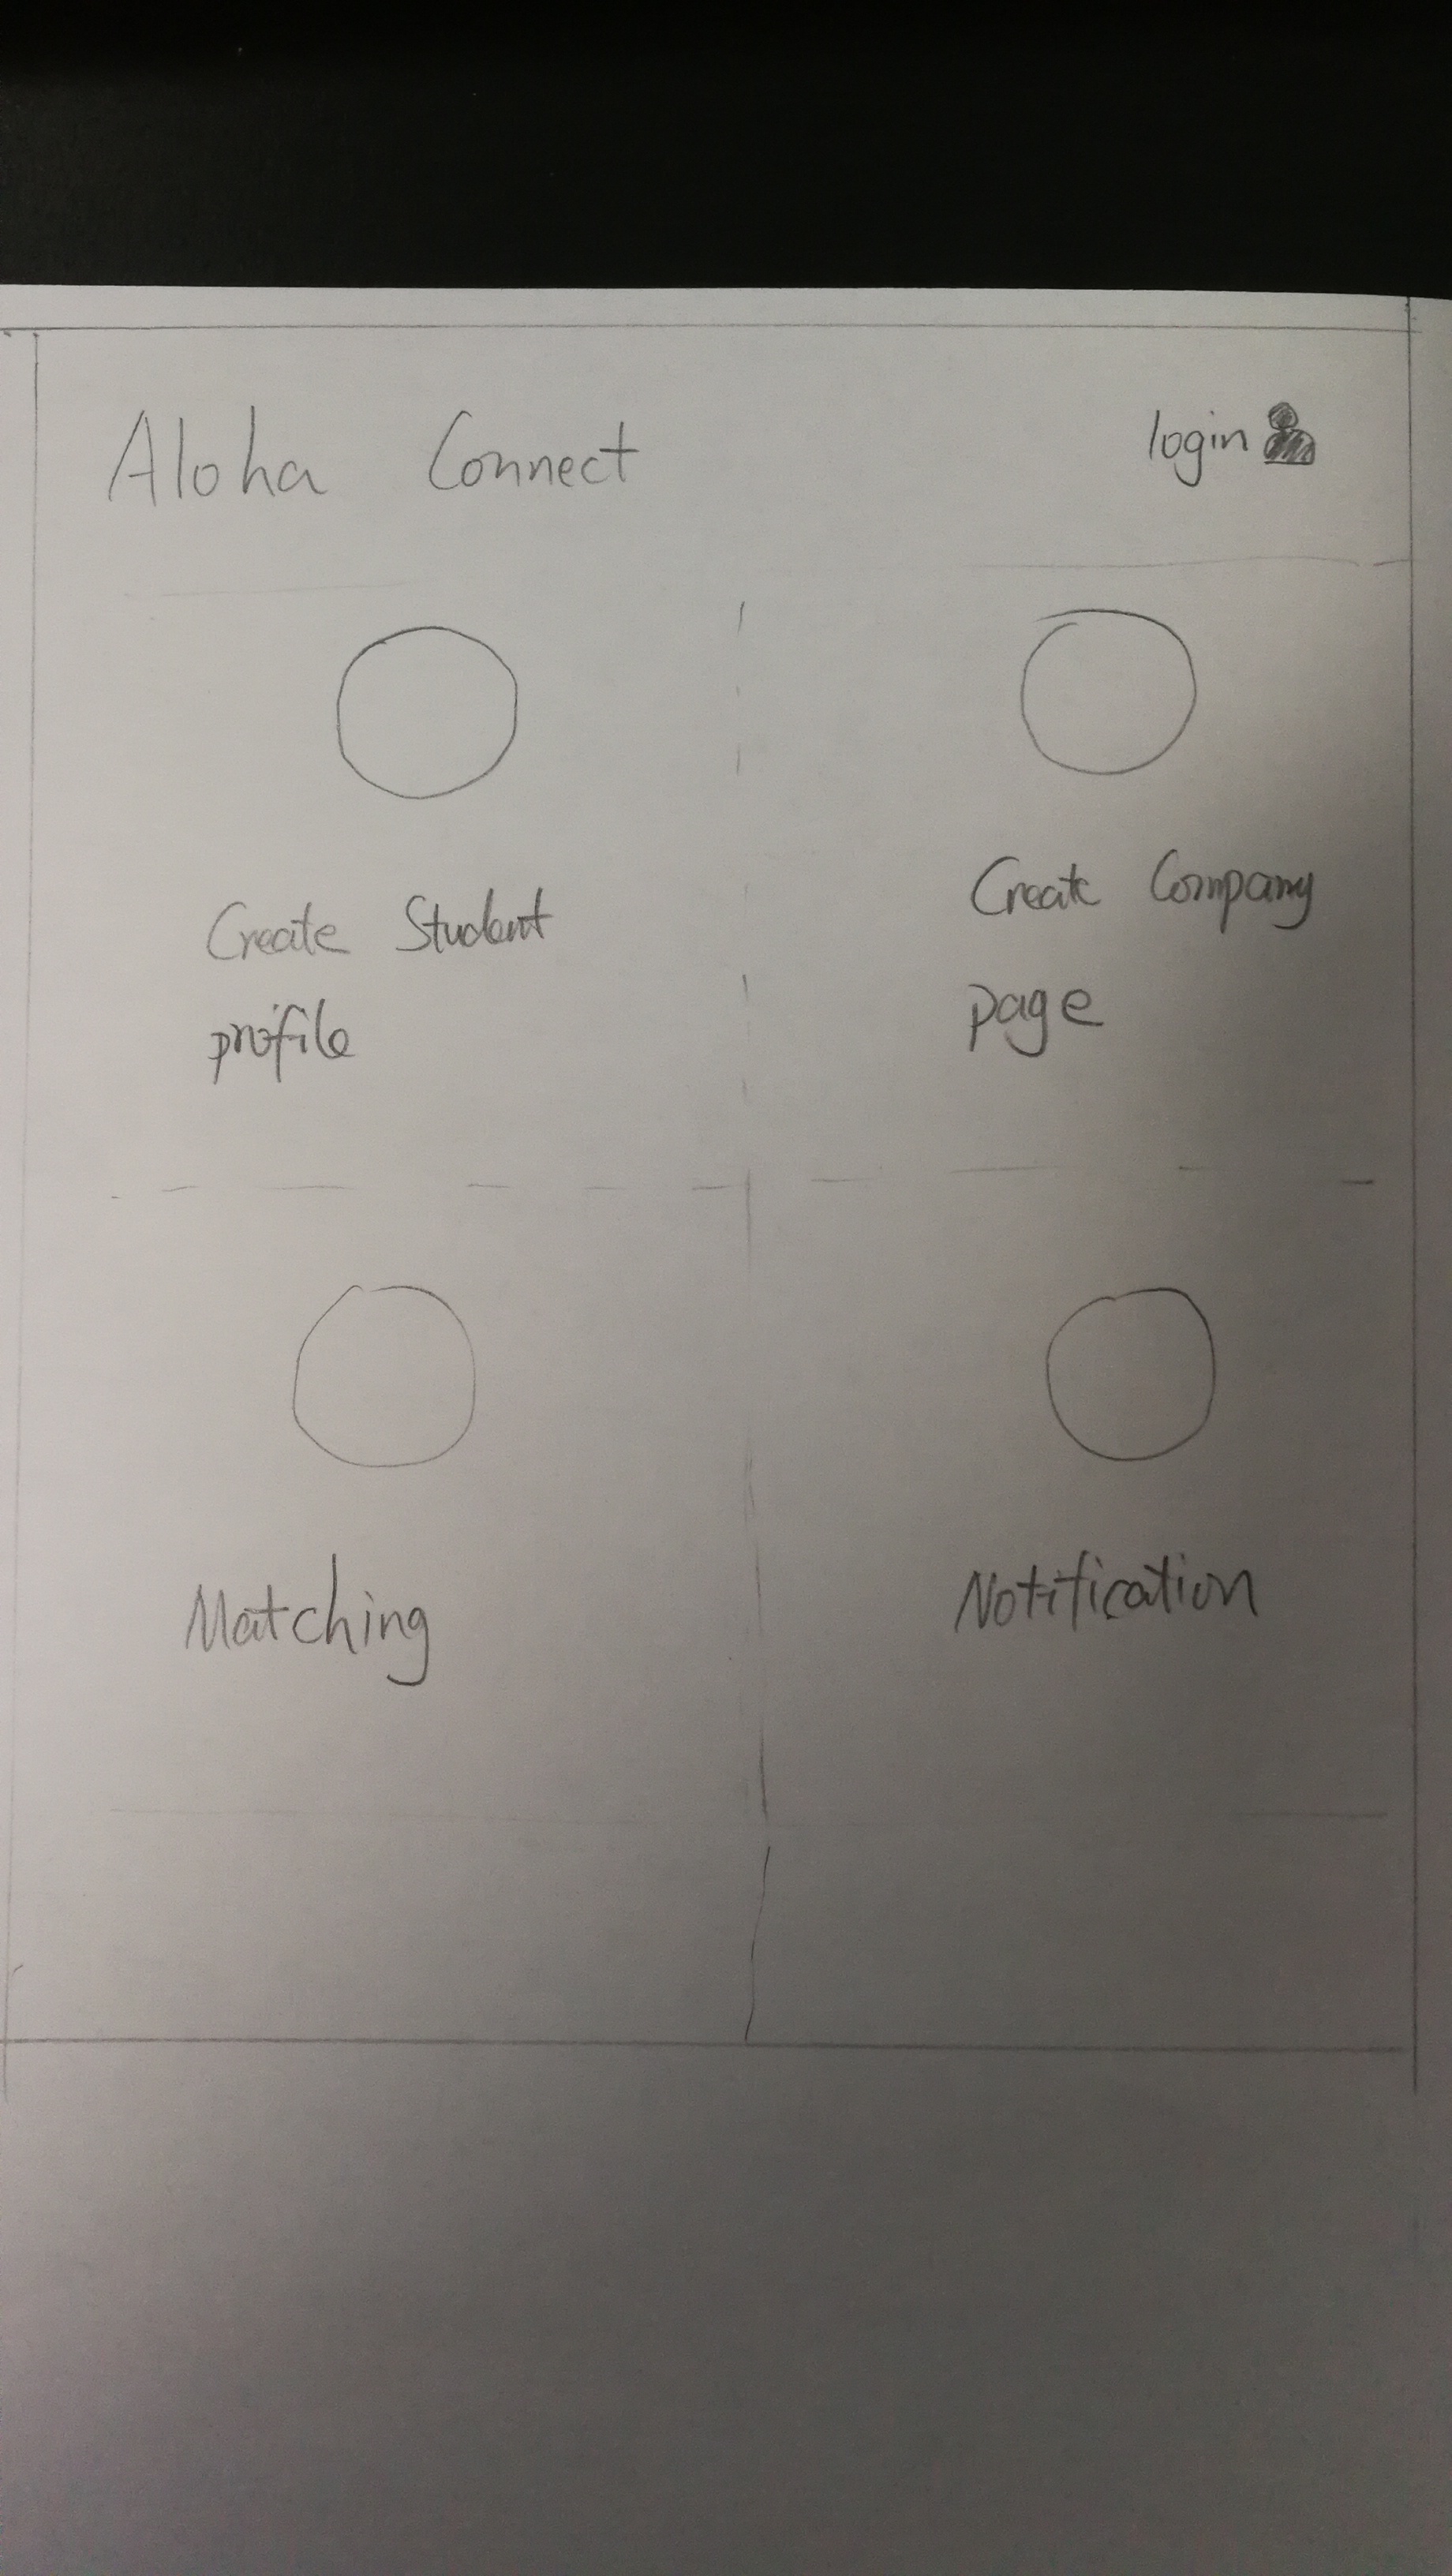 Aloha Connect
login
Create Student
profile
Create Company
page
Matching
Notification